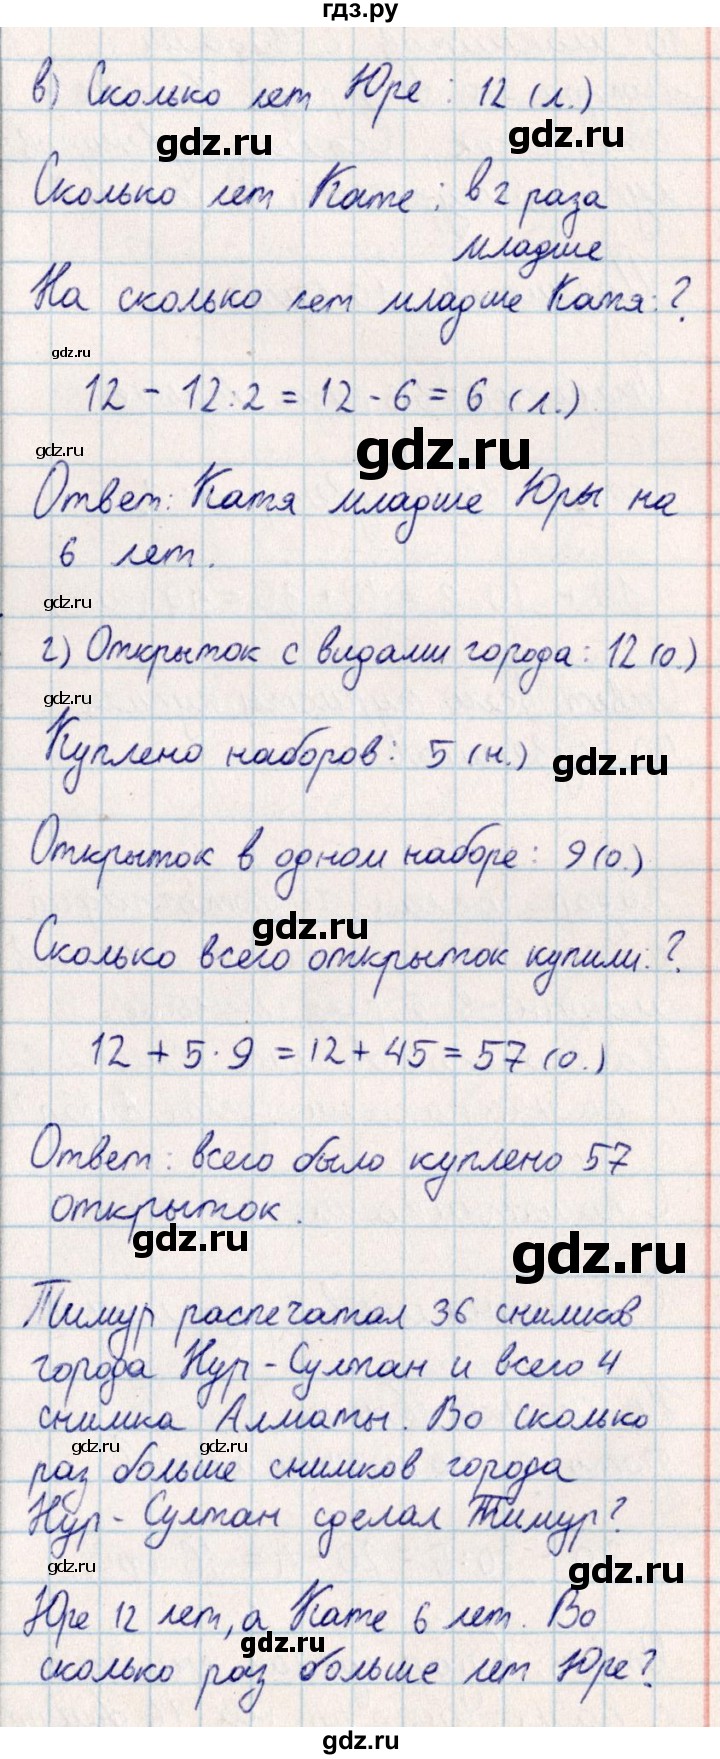 гдз.ру
в) Сколько лет Юре: 12 (л.)
gdz.ru
gdz.ru
Сколько лет Кате: в 2 раза
младше
На сколько лет младше Катя: ?
gdz.ru
12 - 12:2 = 12 - 6 = 6 (л.)
gdz.ru
gdz.ru
Ответ: Катя младше Юры на
6 лет.
gdz.ru
г) Открыток с видами города: 12 (о.)
gdz.ru
Куплено наборов: 5 (н.)
gdz.ru
Открыток в одном наборе: 9 (о.)
gdz.ru
Сколько всего открыток купили: ?
12 + 5 · 9 = 12 + 45 = 57 (о.)
Ответ: всего было куплено 57
открыток.
gdz.ru
gdz.ru
Тимур распечатал 36 снимков
города Нур-Султан и всего 4
снимка Алматы. Во сколько
gdz.ru
gdz.ru
раз больше снимков города
Нур-Султан сделал Тимур?
gdz.ru
gdz.ru
Юре 12 лет, а Кате 6 лет. Во
gdz.ru
сколько раз больше лет Юре?
gdz.ru
gdz.ru